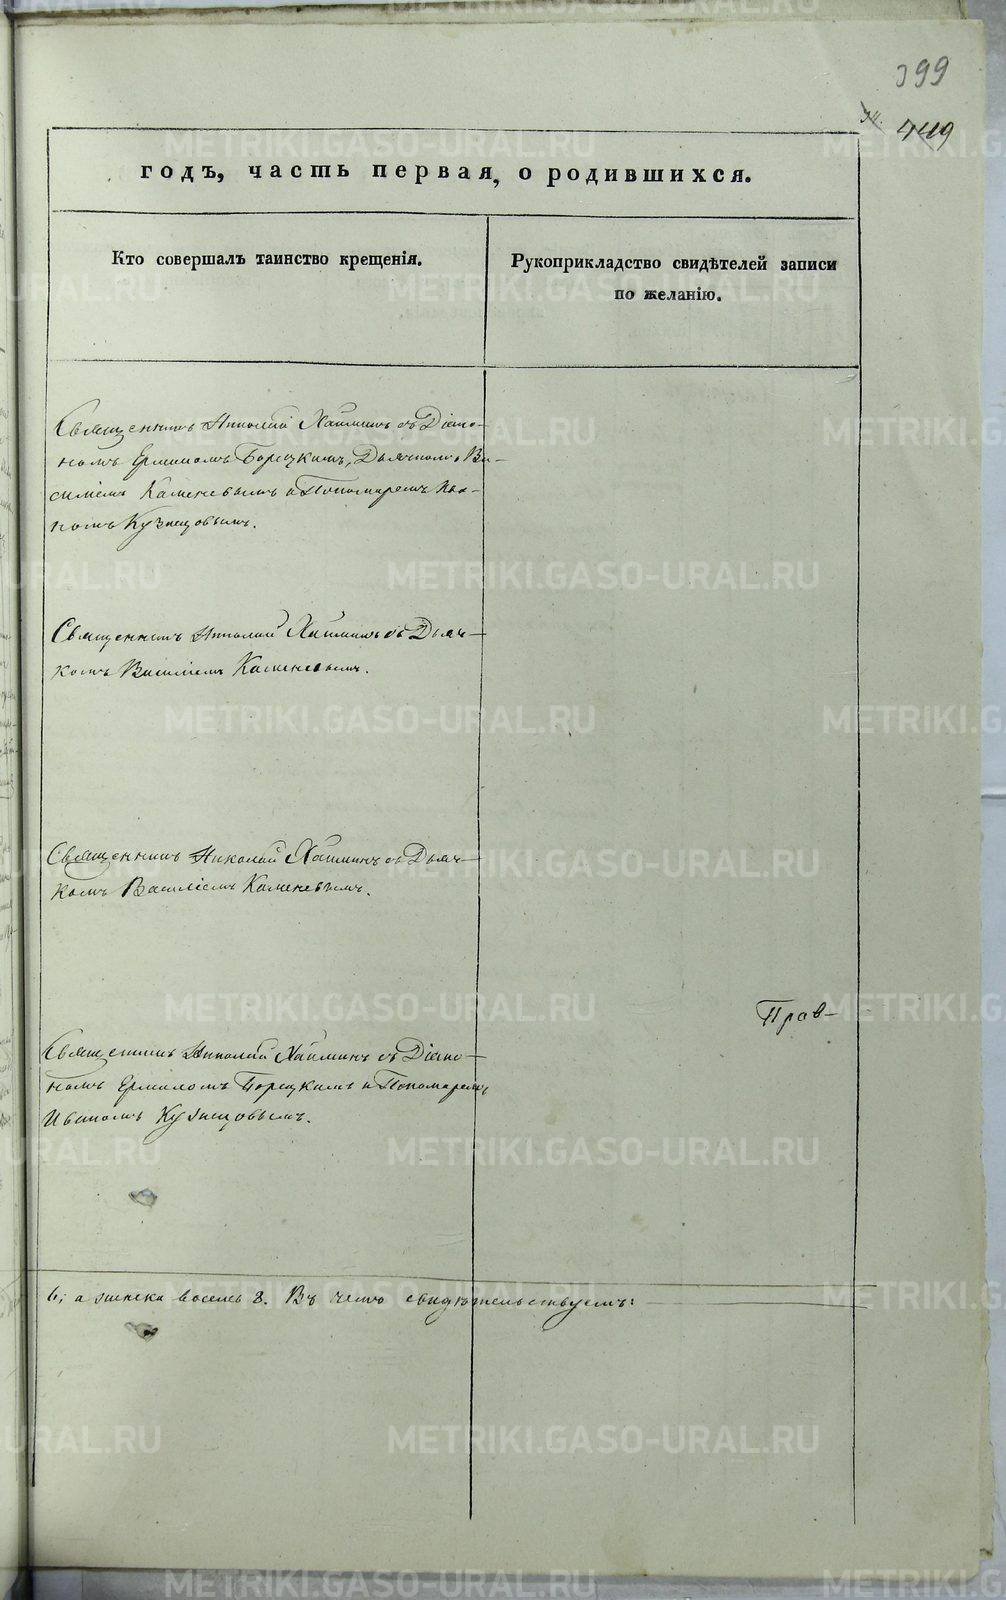 399
449
годъ, часть первая, о родившихся.
Кто совершалъ таинство крещенія.
Рукоприкладство свидѣтелей записи
по желанію.
Священникъ Николай Хаминъ съ Діако-
номъ Ермиломъ Борецкимъ, Дьячкомъ Ва-
силіемъ Каменевымъ и Пономаремъ Ива-
номъ Кузнецовымъ.
Священникъ Николай Хаминъ съ Дьяч-
комъ Василіемъ Каменевымъ.
Священникъ Николай Хаминъ съ Дьяч-
комъ Василіемъ Каменевымъ.
Прав-
Священникъ Николай Хаминъ съ Діако-
номъ Ермиломъ Борецкимъ и Пономаремъ
Иваномъ Кузнецовымъ.
6; а женска восемь 8. Въ чемъ свидѣтельствуемъ:
METRIKI.GASO-URAL.RU